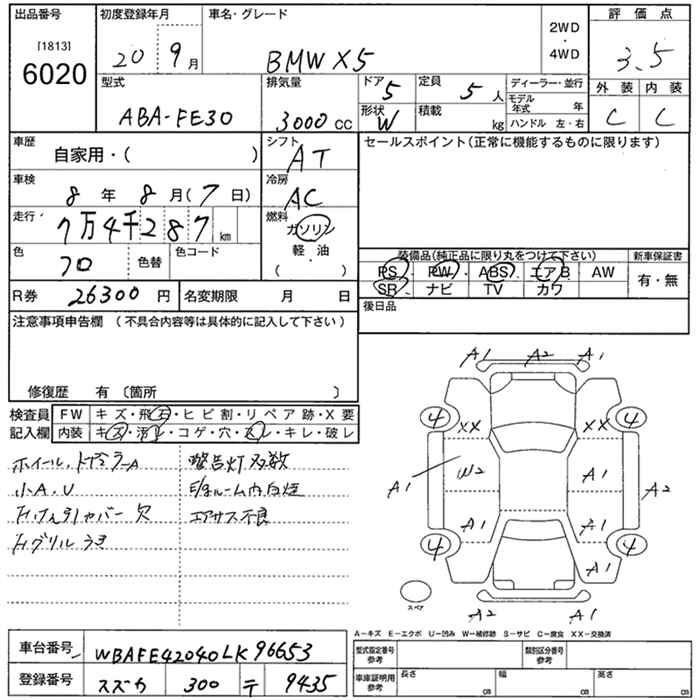 出品番号 初度登録年月 車名・グレード 2WD・4WD 評価点
[1813]
6020 20 9月 BMW X5 3.5
型式 排気量 ドア 5 定員 5人 ディーラー・並行 外装 内装
ABA-FE30 3000cc 形状 W 積載 kg モデル年式 年 C C
ハンドル 左・右
車歴 自家用・( ) シフト AT セールスポイント(正常に機能するものに限ります)
車検 8年 8月(7日) 冷房 AC
走行 7万4千287km 燃料 ガソリン・軽油・( )
色 色替 色コード
装備品(純正品に限り丸をつけて下さい) 新車保証書
PS PW ABS エアB AW 有・無
SR ナビ TV カワ
R券 26300円 名変期限 月 日 後日品
注意事項申告欄(不具合内容等は具体的に記入して下さい)
修復歴 有〔箇所 〕
検査員 FW キズ・飛石・ヒビ割・リペア跡・X要
記入欄 内装 キズ・汚れ・コゲ・穴・スレ・キレ・破レ
警告灯多数
小A.U
エアサス不良
A1 A2 A1
4 4
XX XX
W2 A1
A1 A2
A1 A1
4 4
A1
スペア
A2 A1
A-キズ E-エクボ U-凹み W-補修跡 S-サビ C-腐食 XX-交換済
車台番号 WBAFE42040LK96653
登録番号 スズカ 300 テ 9435
型式指定番号 参考 類別区分番号 参考
車庫証明用 参考 長さ cm 幅 cm 高さ cm